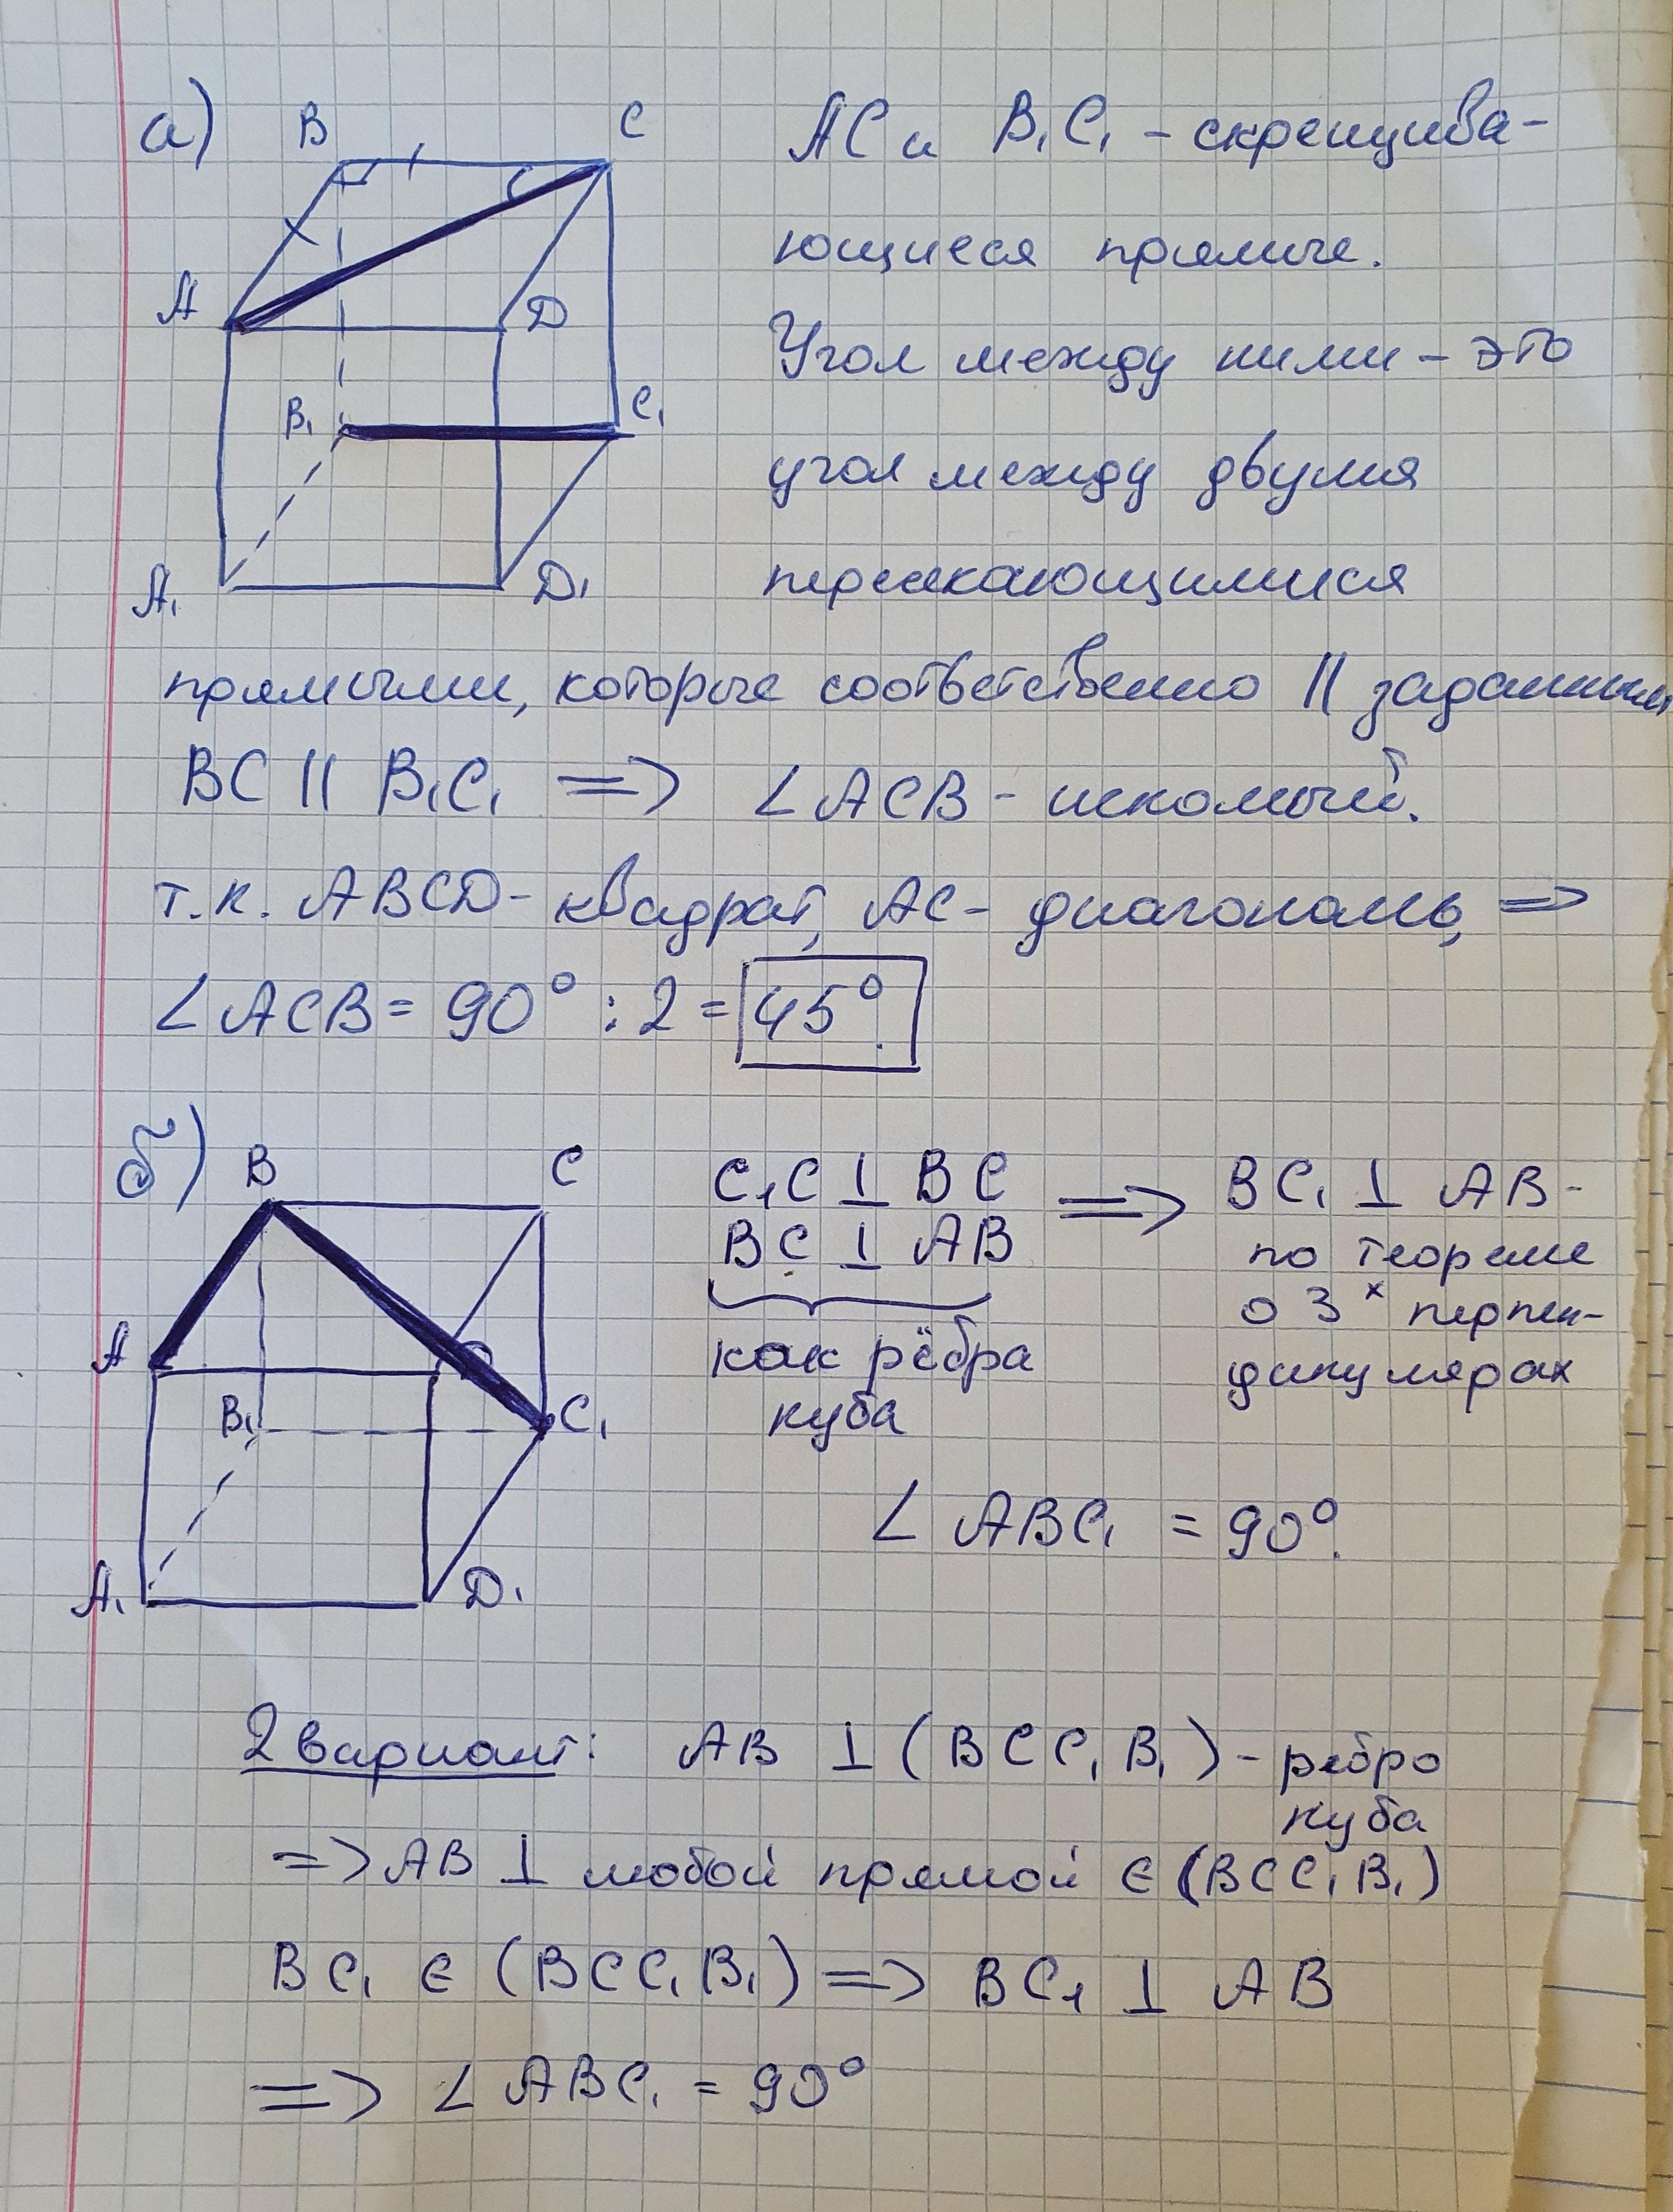 а)
B C
A D
B₁ C₁
A₁ D₁
AC и B₁C₁ - скрещива-
ющиеся прямые.
Угол между ними - это
угол между двумя
пересекающимися
прямыми, которые соответственно || заданным.
BC || B₁C₁ => ∠ACB - искомый.
т.к. ABCD - квадрат, AC - диагональ, =>
∠ACB = 90° : 2 = 45°.
б)
B C
A D
B₁ C₁
A₁ D₁
C₁C ⊥ BC => BC₁ ⊥ AB -
BC ⊥ AB по теореме
о 3ˣ перпен-
как рёбра дикулярах
куба
∠ABC₁ = 90°.
2 вариант: AB ⊥ (BCC₁B₁) - ребро
куба
=> AB ⊥ любой прямой ∈ (BCC₁B₁)
BC₁ ∈ (BCC₁B₁) => BC₁ ⊥ AB
=> ∠ABC₁ = 90°